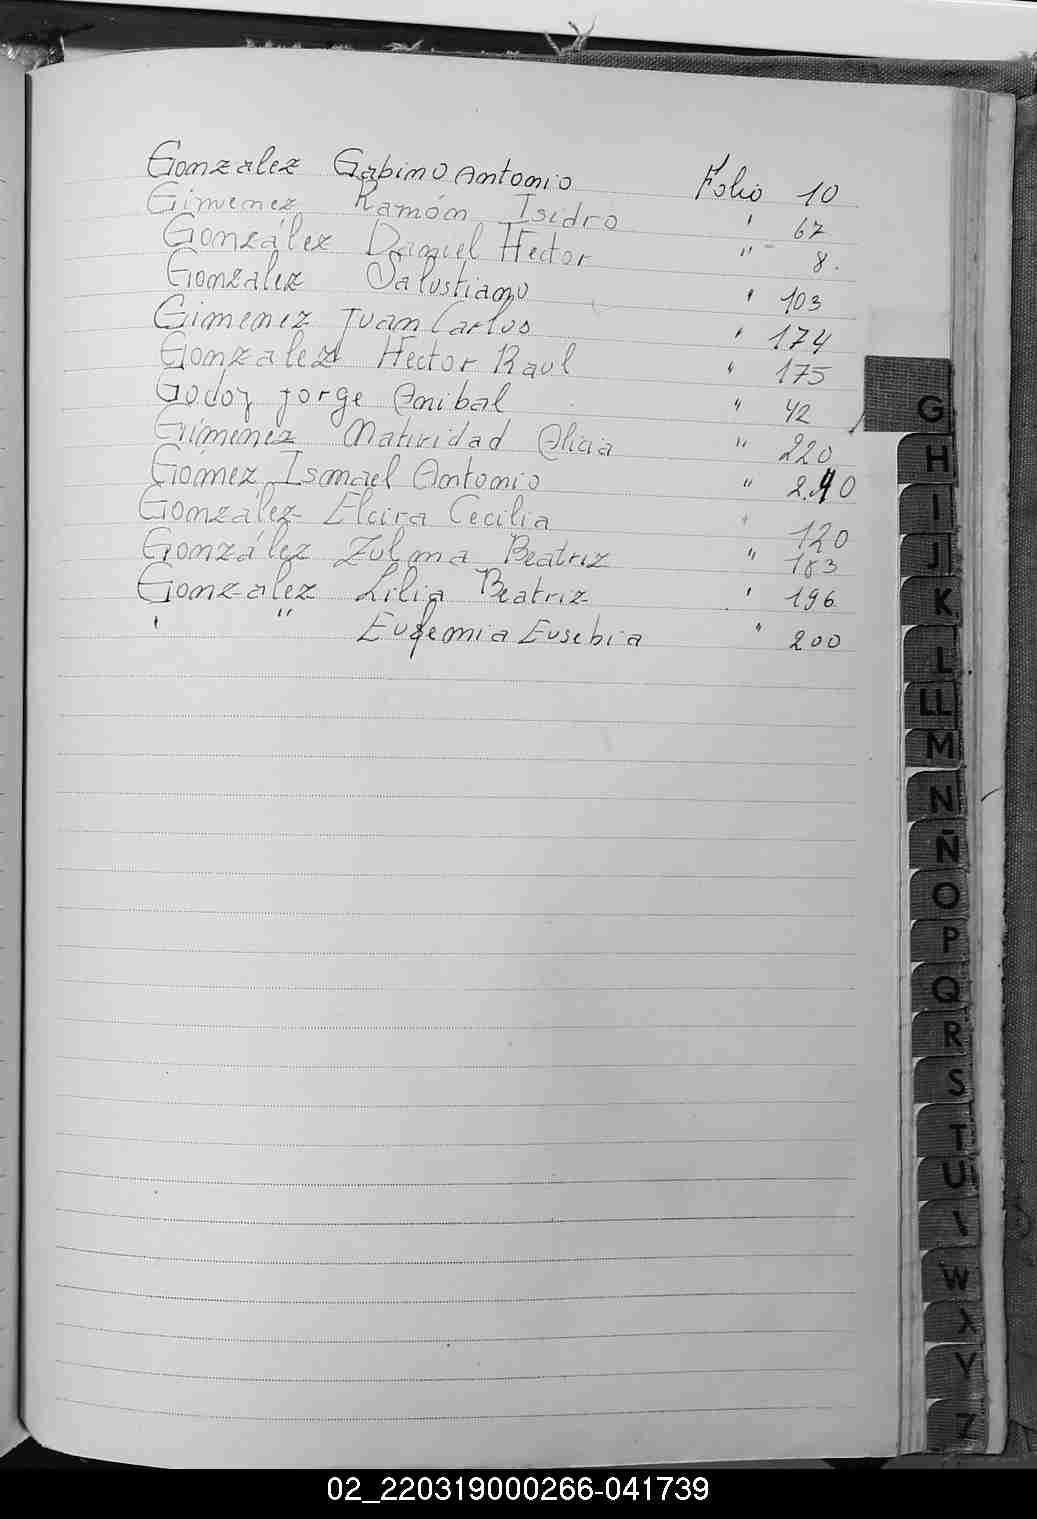 Gonzalez Gabino Antonio Folio 10
Gimenez Ramón Isidro " 67
González Daniel Hector " 8.
Gonzalez Salustiano " 103
Gimenez Juan Carlos " 174
Gonzalez Hector Raul " 175
Godoy Jorge Anibal " 42
Gimenez Natividad Alicia " 220
Gómez Ismael Antonio " 240
González Elcira Cecilia " 120
González Zulma Beatriz " 183
Gonzalez Lilia Beatriz " 196
" " Eugemia Eusebia " 200
G
H
I
J
K
L
LL
M
N
Ñ
O
P
Q
R
S
T
U
W
X
Y
Z
02_220319000266-041739